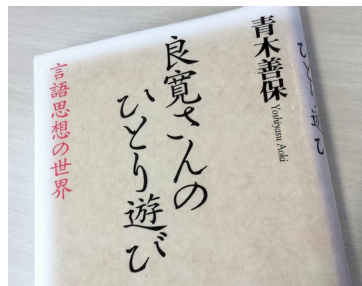 青木善保
Yoshiyasu Aoki
良寛さんの
ひとり遊び
言語思想の世界
ひとり遊び